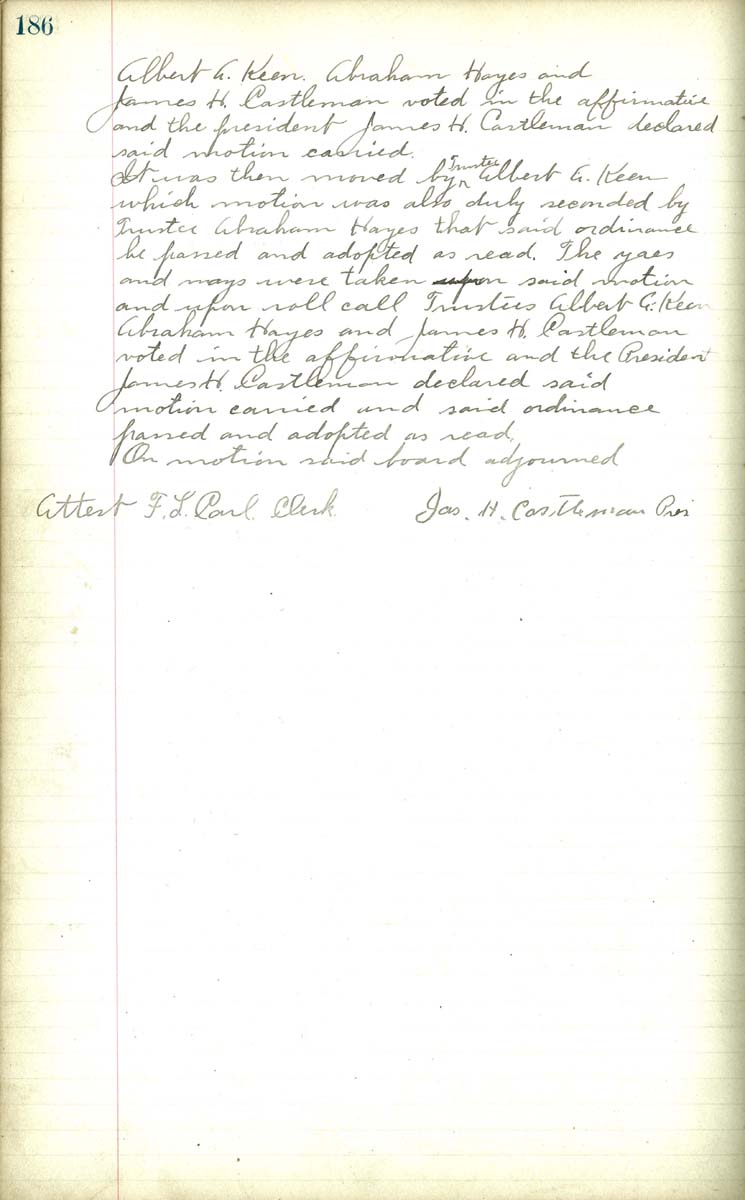 186
Albert G. Keen. Abraham Hayes and
James H. Castleman voted in the affirmative
and the president James H. Castleman declared
said motion carried.
It was then moved by Trustee Albert G. Keen
which motion was also duly seconded by
Trustee Abraham Hayes that said ordinance
be passed and adopted as read. The yaes
and nays were taken upon said motion
and upon roll call Trustees Albert G. Keen
Abraham Hayes and James H. Castleman
voted in the affirmative and the President
James H. Castleman declared said
motion carried and said ordinance
passed and adopted as read.
On motion said board adjourned
Attest F. L. Carl. Clerk. Jas. H. Castleman Pres